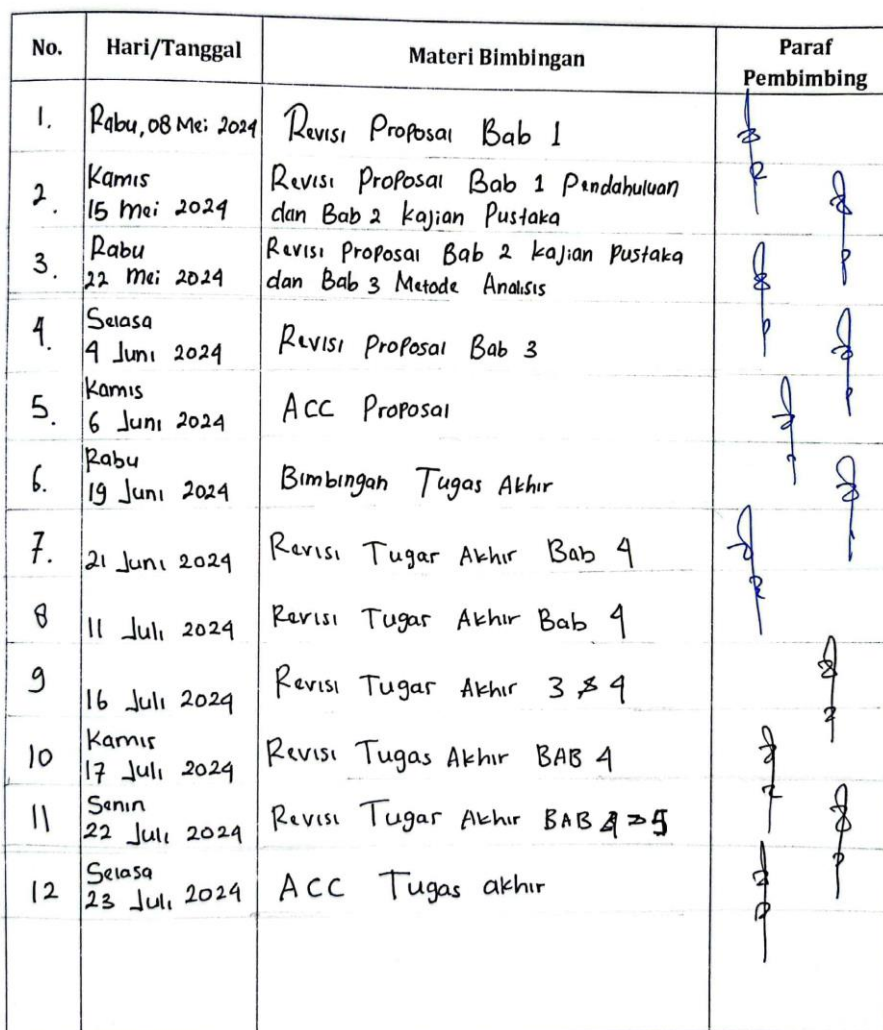 No. Hari/Tanggal Materi Bimbingan Paraf Pembimbing
1. Rabu, 08 Mei 2024 Revisi Proposal Bab 1
2. Kamis Revisi Proposal Bab 1 Pendahuluan
15 Mei 2024 dan Bab 2 kajian Pustaka
3. Rabu Revisi Proposal Bab 2 kajian Pustaka
22 Mei 2024 dan Bab 3 Metode Analisis
4. Selasa
4 Juni 2024 Revisi Proposal Bab 3
5. Kamis
6 Juni 2024 ACC Proposal
6. Rabu
19 Juni 2024 Bimbingan Tugas Akhir
7. 21 Juni 2024 Revisi Tugas Akhir Bab 4
8 11 Juli 2024 Revisi Tugas Akhir Bab 4
9 16 Juli 2024 Revisi Tugas Akhir 3 & 4
10 Kamis
17 Juli 2024 Revisi Tugas Akhir BAB 4
11 Senin
22 Juli 2024 Revisi Tugas Akhir BAB 5
12 Selasa
23 Juli 2024 ACC Tugas akhir